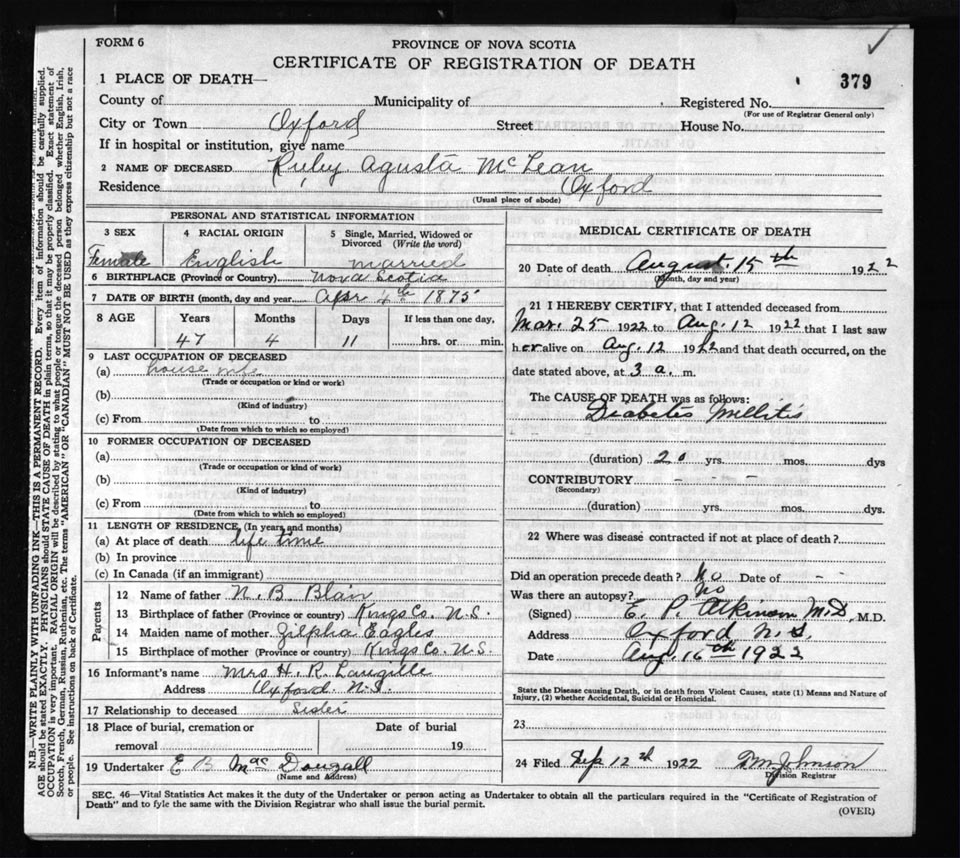 FORM 6
PROVINCE OF NOVA SCOTIA
CERTIFICATE OF REGISTRATION OF DEATH
379
1 PLACE OF DEATH—
County of Municipality of Registered No.
(For use of Registrar General only)
City or Town Oxford Street House No.
If in hospital or institution, give name
2 NAME OF DECEASED Ruby Agusta McLean
Residence Oxford
(Usual place of abode)
PERSONAL AND STATISTICAL INFORMATION
3 SEX 4 RACIAL ORIGIN 5 Single, Married, Widowed or Divorced (Write the word)
Female English married
6 BIRTHPLACE (Province or Country) Nova Scotia
7 DATE OF BIRTH (month, day and year) Apr 4th 1875
8 AGE Years Months Days If less than one day,
47 4 11 hrs. or min.
9 LAST OCCUPATION OF DECEASED
(a) house
(Trade or occupation or kind or work)
(b)
(Kind of industry)
(c) From to
(Date from which to which so employed)
10 FORMER OCCUPATION OF DECEASED
(a)
(Trade or occupation or kind of work)
(b)
(Kind of industry)
(c) From to
(Date from which to which so employed)
11 LENGTH OF RESIDENCE (In years and months)
(a) At place of death life time
(b) In province
(c) In Canada (if an immigrant)
Parents
12 Name of father N. B. Blair
13 Birthplace of father (Province or country) Kings Co. N.S.
14 Maiden name of mother Zilpha Eagles
15 Birthplace of mother (Province or country) Kings Co. N.S.
16 Informant's name Mrs H. R.
Address Oxford N.S.
17 Relationship to deceased Sister
18 Place of burial, cremation or removal Date of burial 19
19 Undertaker E B MacDougall
(Name and Address)
MEDICAL CERTIFICATE OF DEATH
20 Date of death August 15th 1922
(Month, day and year)
21 I HEREBY CERTIFY, that I attended deceased from
Mar. 25 1922 to Aug. 12 1922 that I last saw
her alive on Aug. 12 1922 and that death occurred, on the
date stated above, at 3 a. m.
The CAUSE OF DEATH was as follows:
Diabetis Millitis
(duration) 20 yrs. mos. dys
CONTRIBUTORY - - - -
(Secondary)
(duration) yrs. mos. dys.
22 Where was disease contracted if not at place of death?
Did an operation precede death? No Date of - -
Was there an autopsy? No
(Signed) E. P. Atkinson M.D, M.D.
Address Oxford N.S.
Date Aug. 16th 1922
State the Disease causing Death, or in death from Violent Causes, state (1) Means and Nature of
Injury, (2) whether Accidental, Suicidal or Homicidal.
23
24 Filed Sep 12th 1922 Johnson
Division Registrar
SEC. 46—Vital Statistics Act makes it the duty of the Undertaker or person acting as Undertaker to obtain all the particulars required in the "Certificate of Registration of
Death" and to fyle the same with the Division Registrar who shall issue the burial permit.
(OVER)
N.B.—WRITE PLAINLY WITH UNFADING INK—THIS IS A PERMANENT RECORD. Every item of information should be carefully supplied.
AGE should be stated EXACTLY. PHYSICIANS should STATE CAUSE OF DEATH in plain terms, so that it may be properly classified. Exact statement of
OCCUPATION is very important. RACIAL ORIGIN will be described by stating to what people or tongue the deceased person belonged, whether English, Irish,
Scotch, French, German, Russian, Ruthenian, etc. The terms "AMERICAN" OR "CANADIAN" MUST NOT BE USED as they express citizenship but not a race
or people. See instructions on back of Certificate.